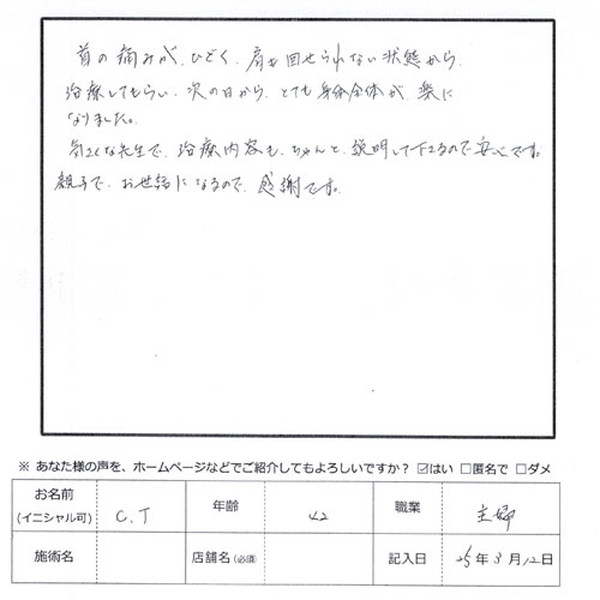 首の痛みが、ひどく、肩も回せられない状態から、
治療してもらい、次の日から、とても身体全体が、楽に
なりました。
気さくな先生で、治療内容も、ちゃんと、説明して下さるので安心です。
親子で、お世話になるので、感謝です。
※ あなた様の声を、ホームページなどでご紹介してもよろしいですか？ ☑はい □匿名で □ダメ
お名前 (イニシャル可) C.T 年齢 42 職業 主婦
施術名 店舗名(必須) 記入日 25年3月12日